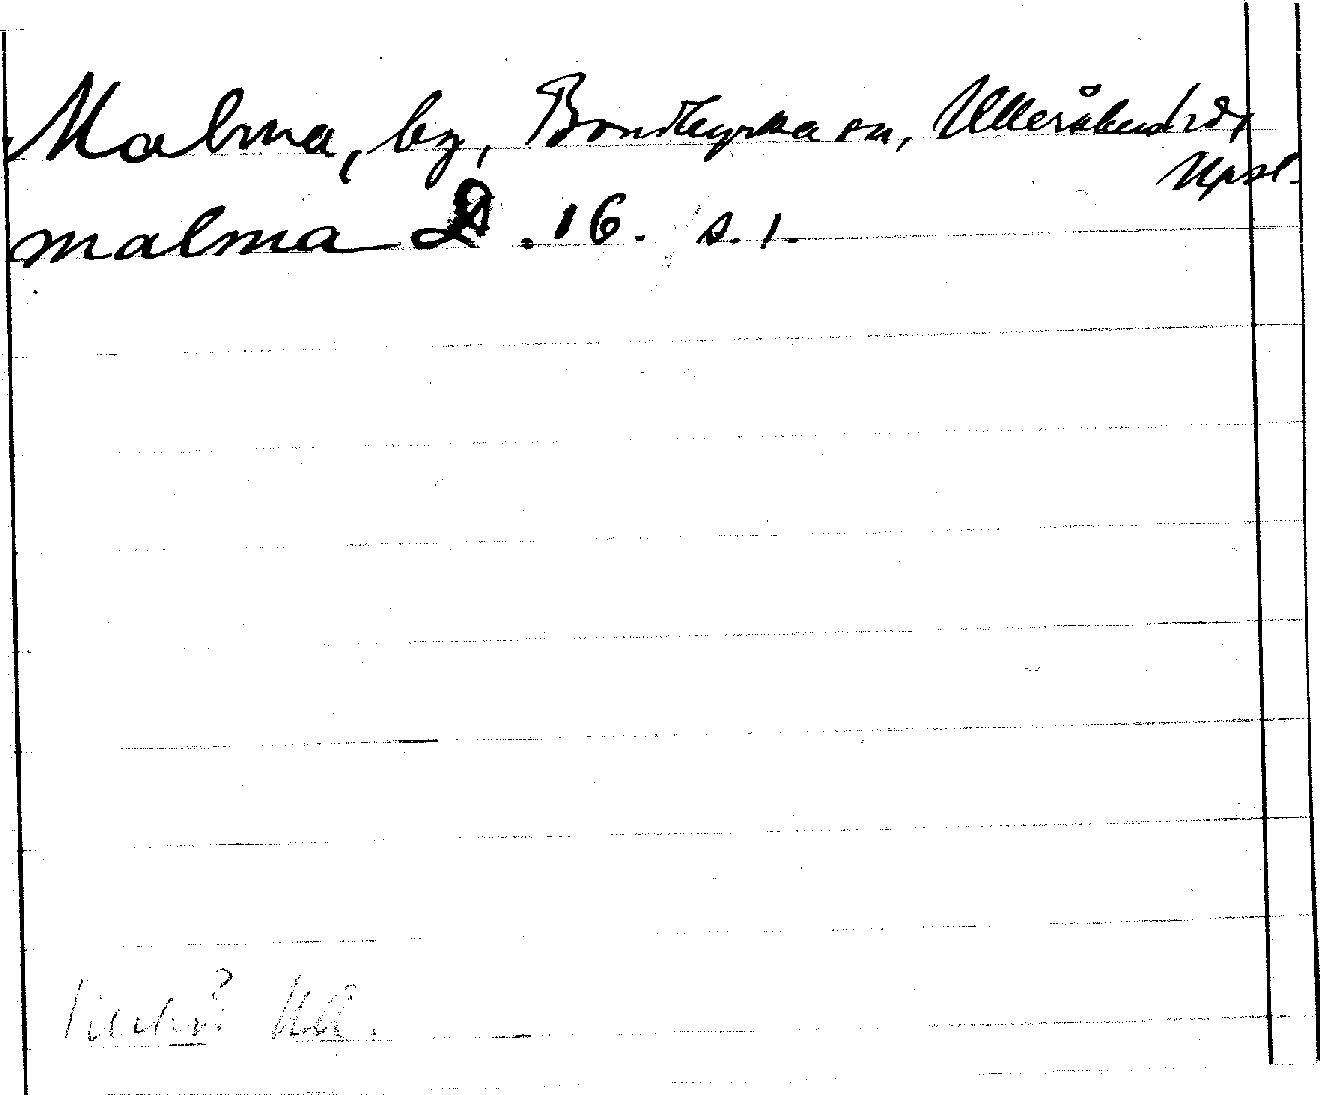 Malma, by, Bondkyrka sn, Ulleråkers hd,
Upsl.
malma D. 16. s. 1.